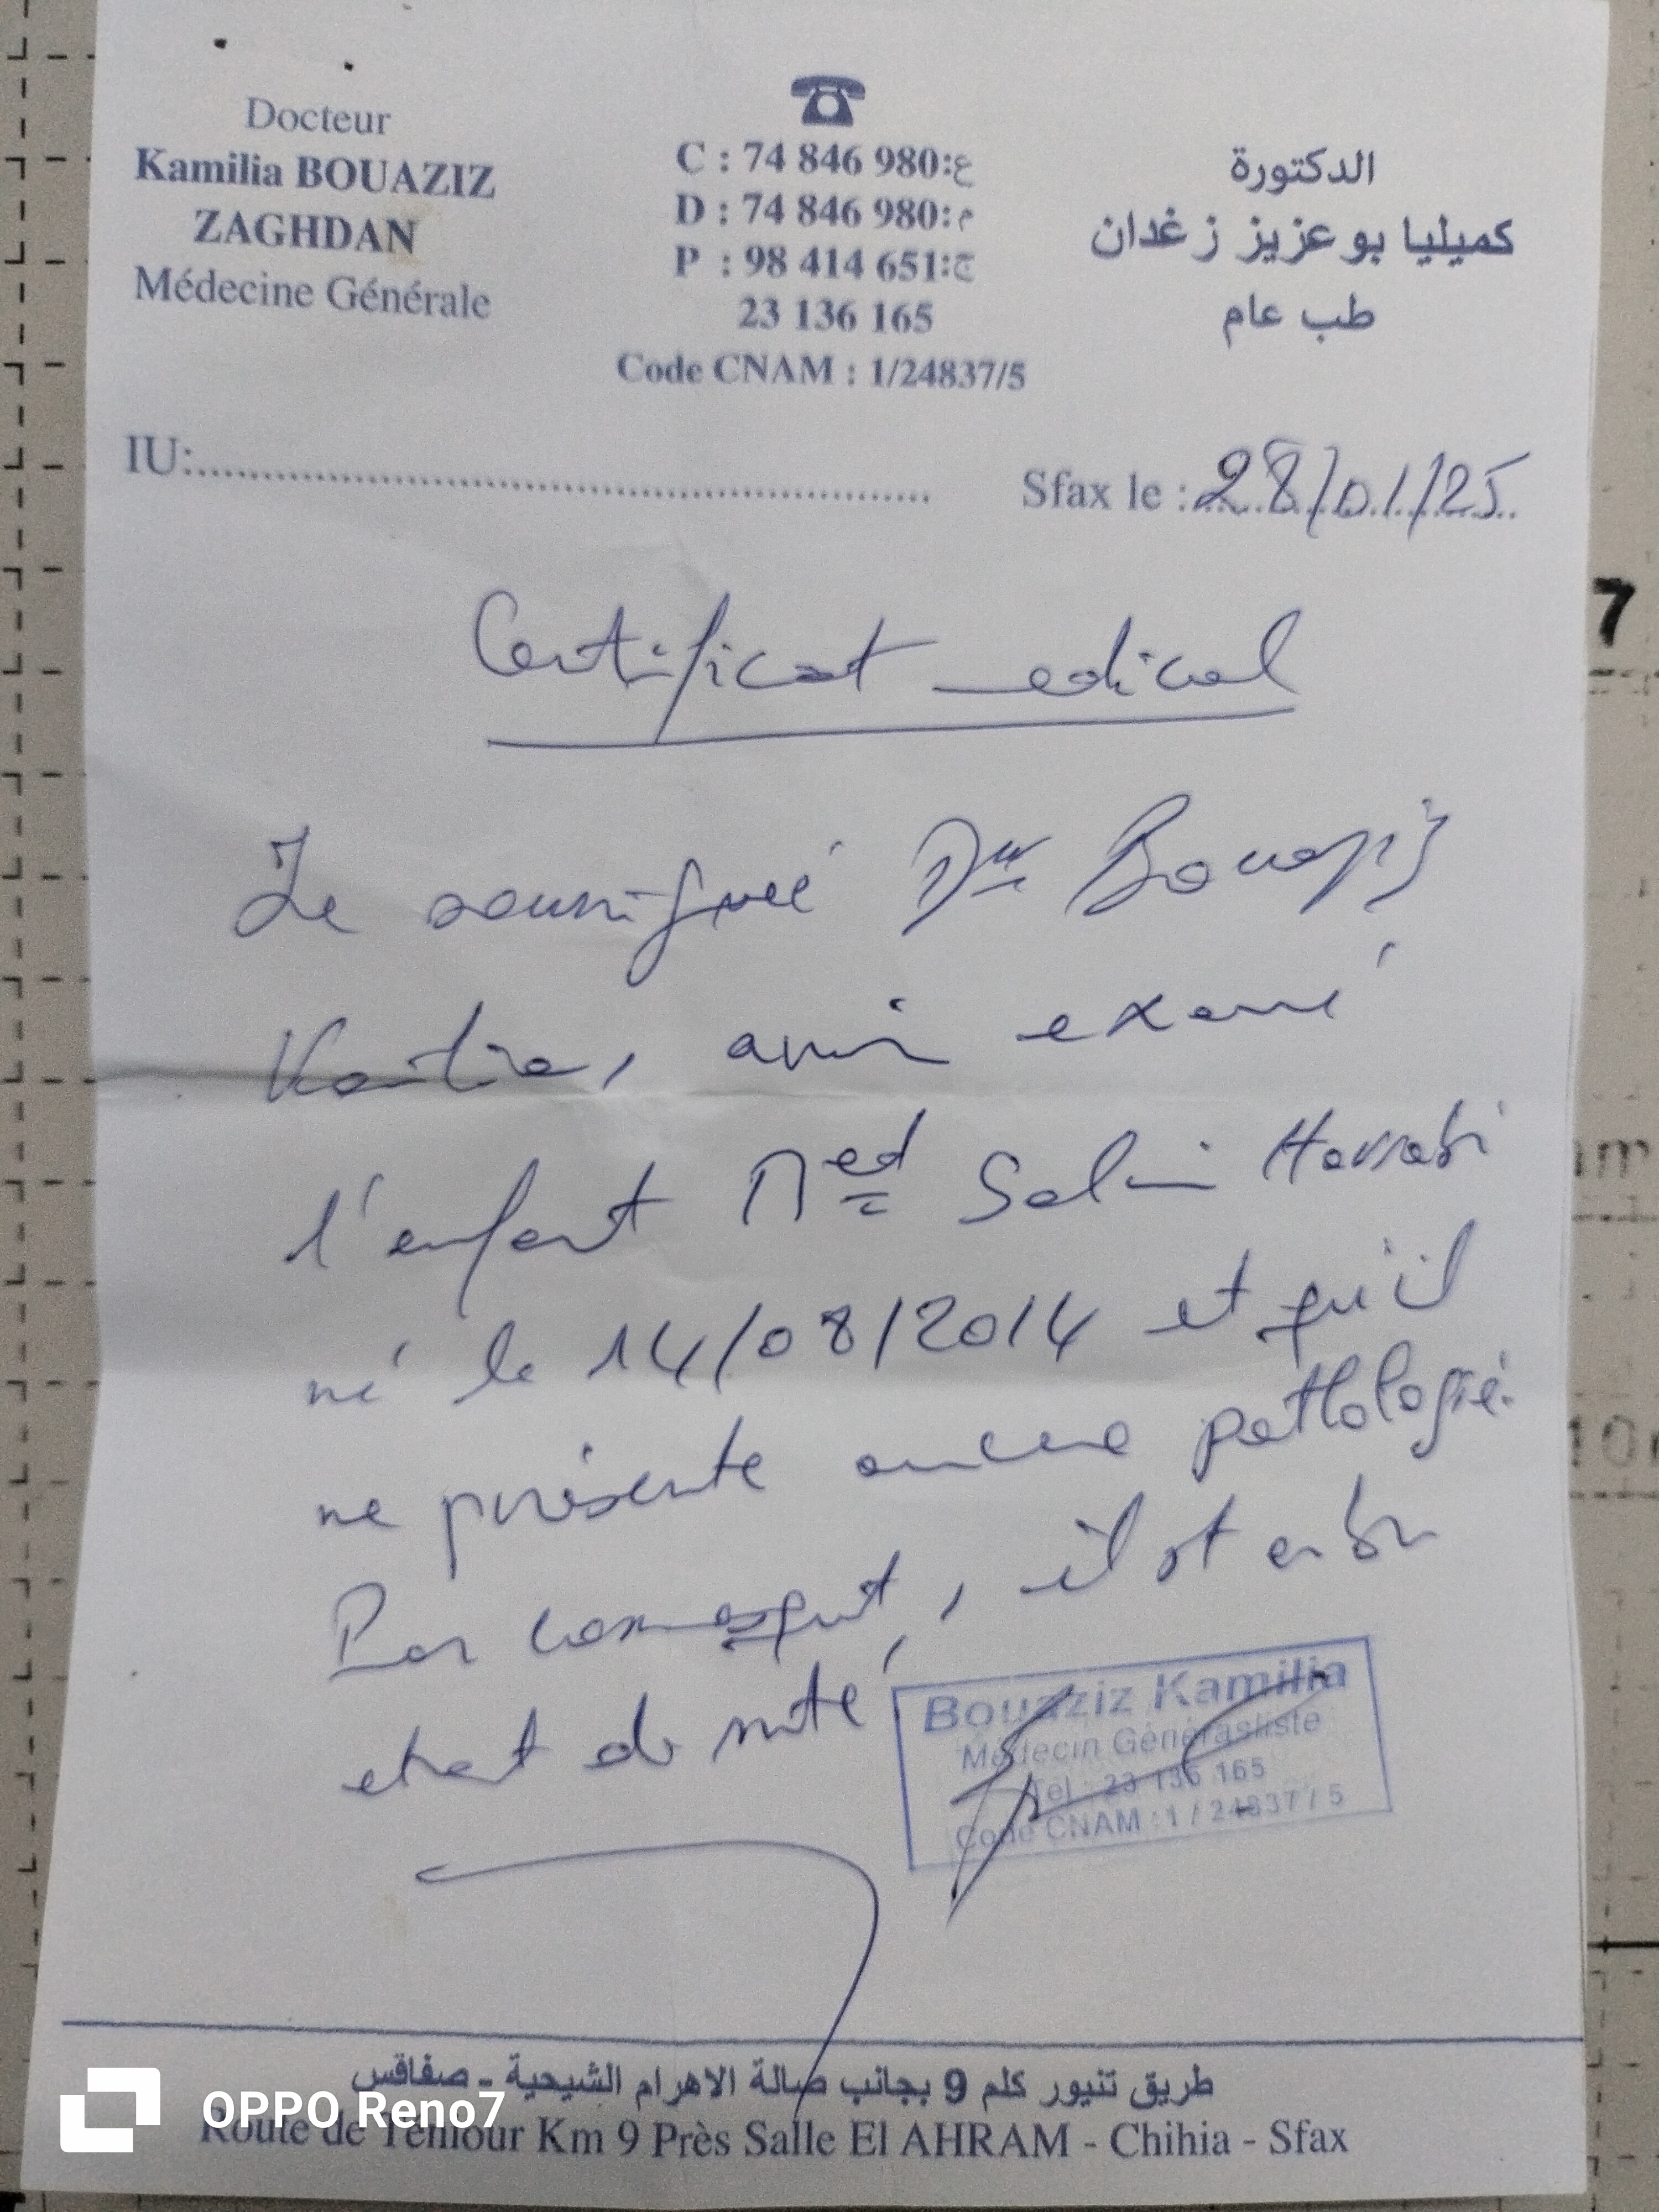 Docteur
Kamilia BOUAZIZ
ZAGHDAN
Médecine Générale
C : 74 846 980:ع
D : 74 846 980:م
P : 98 414 651:ج
23 136 165
Code CNAM : 1/24837/5
الدكتورة
كميليا بوعزيز زغدان
طب عام
IU:
Sfax le : 28/01/25
Certificat medical
Je soussignée Dr Bouaziz
Kamilia, avoir examiné
l'enfant Med Salim Harrabi
né le 14/08/2014 et qu'il
ne présente aucune pathologie.
Par conséquent, il est en bon
etat de santé
Bouaziz Kamilia
Médecin Générasliste
Tel : 23 136 165
Code CNAM : 1 / 24837 / 5
طريق تنيور كلم 9 بجانب صالة الاهرام الشيحية - صفاقس
Route de Teniour Km 9 Près Salle El AHRAM - Chihia - Sfax
OPPO Reno7
7